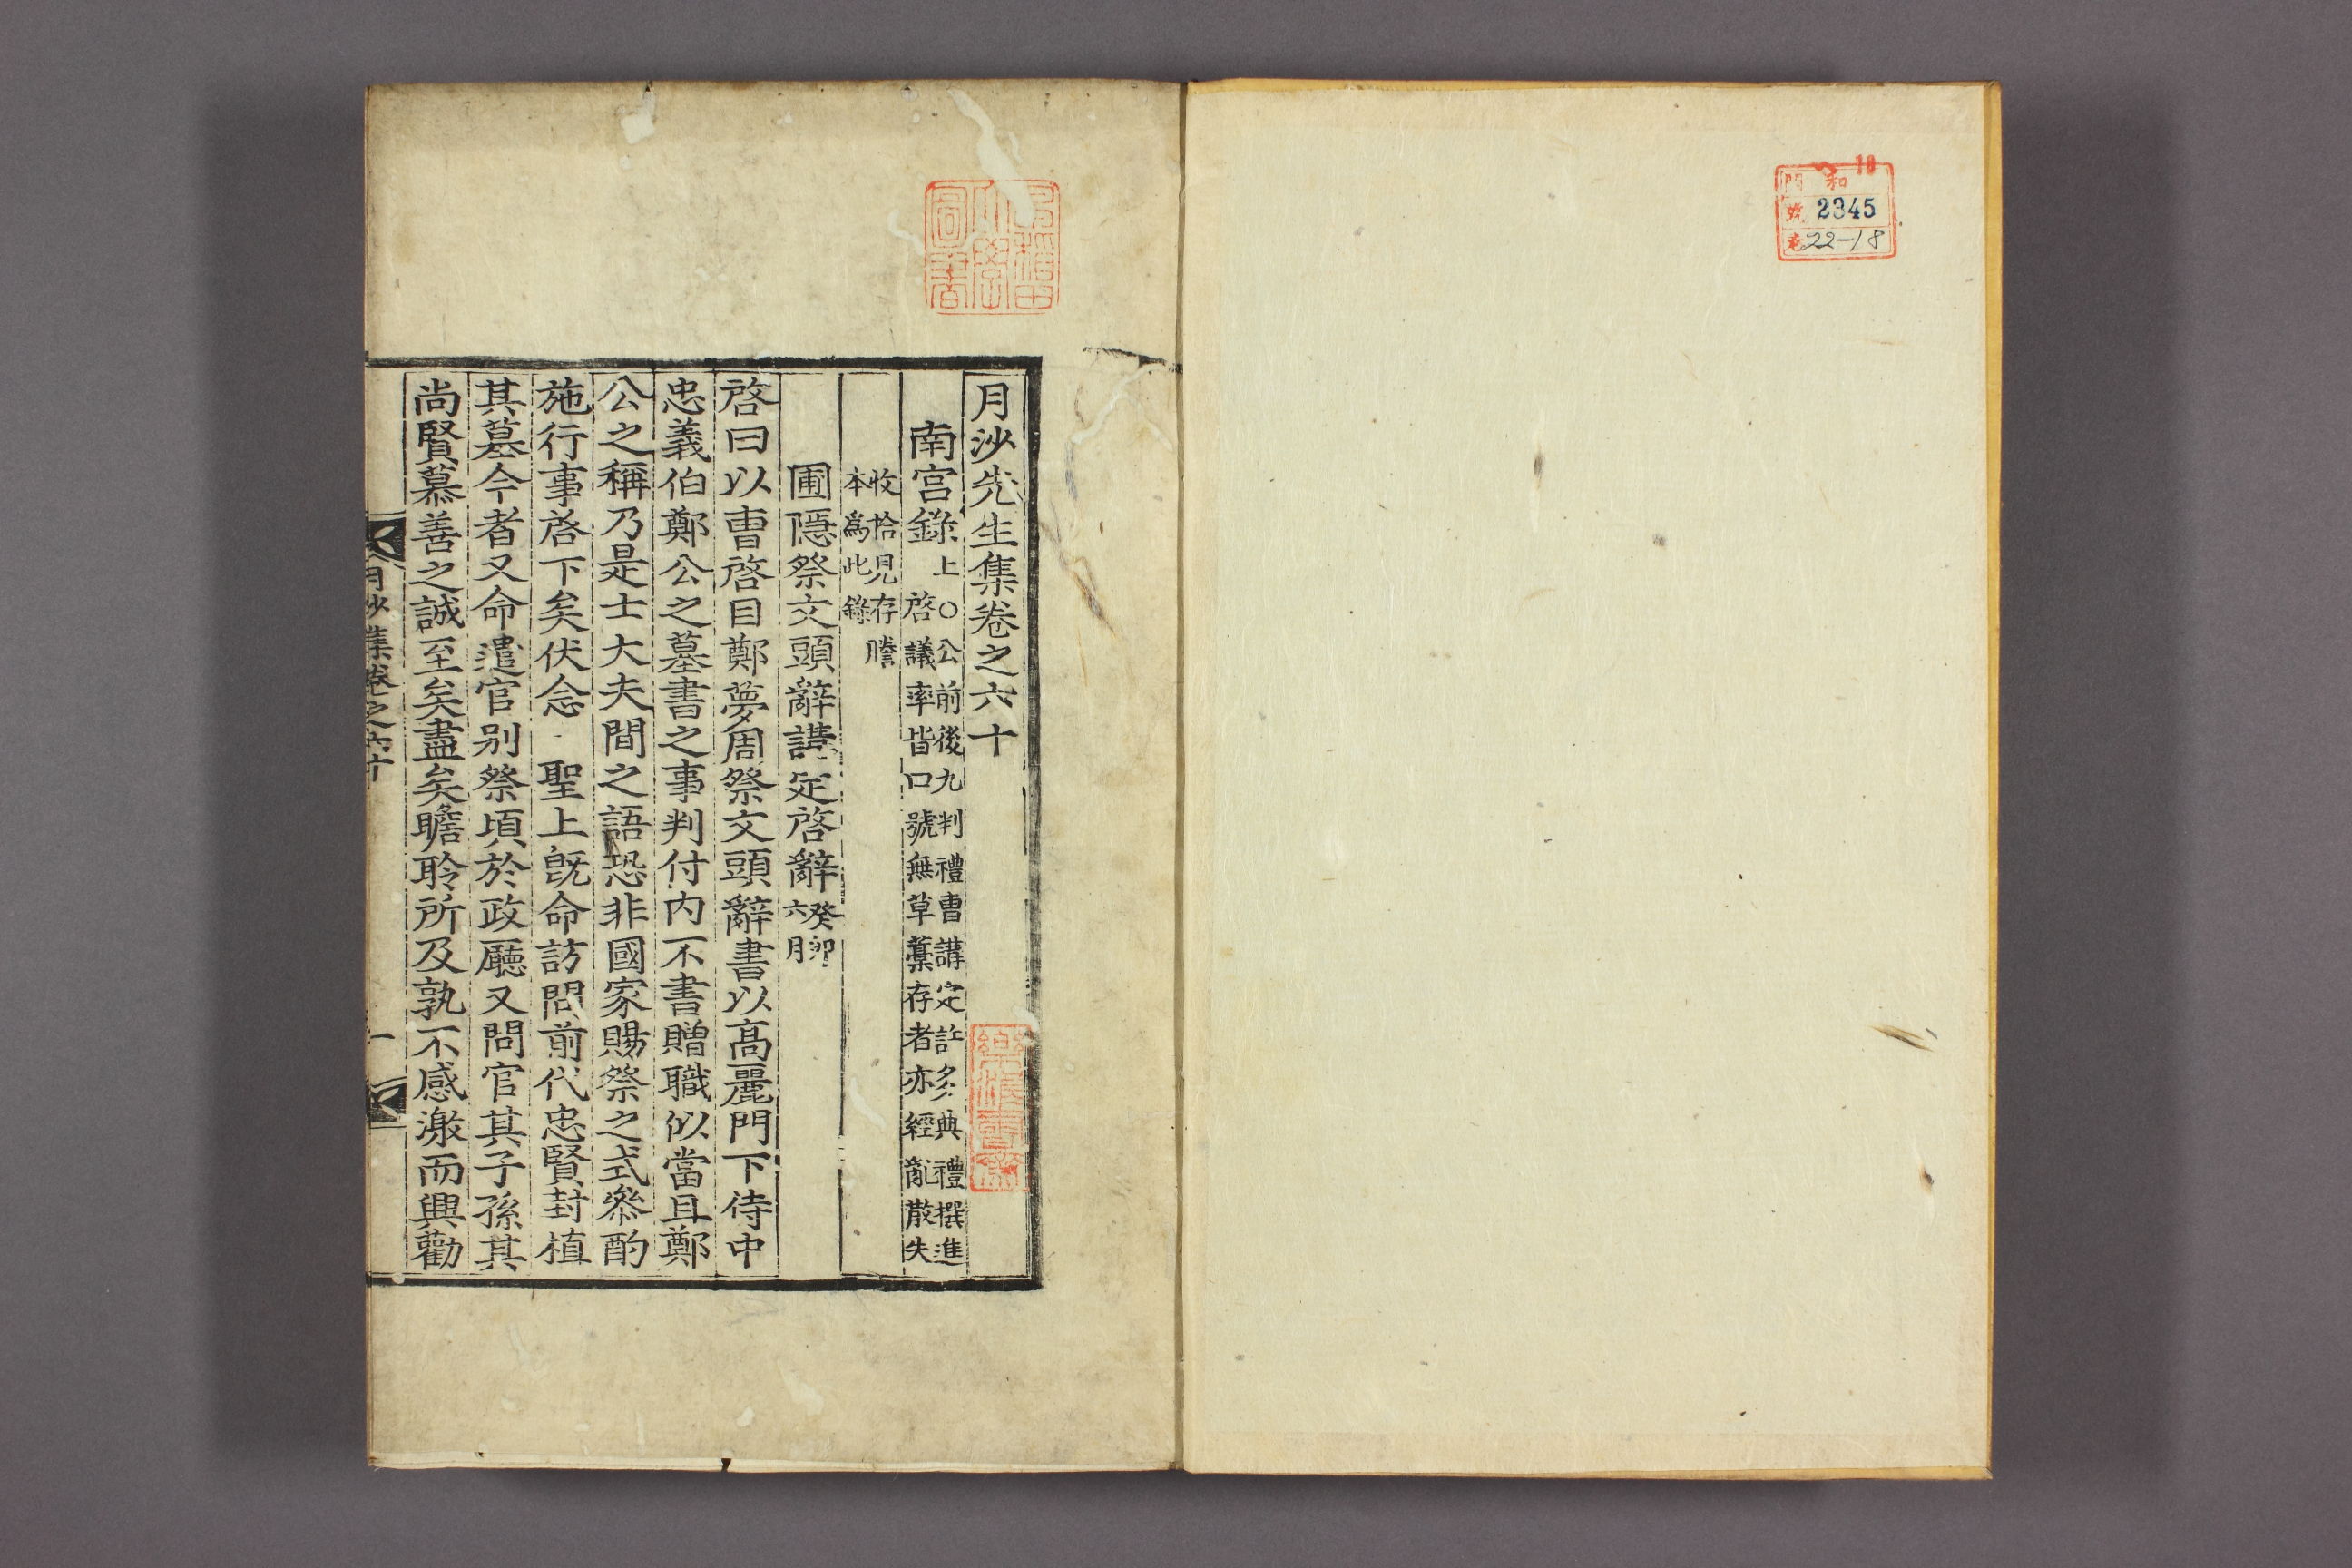 和 18
門
號 2345
卷 22-18
早稲田大學圖書
月沙先生集卷之六十
南宮錄上○公前後九判禮曹講定許多典禮撰進
啓議率皆口號無草藁存者亦經亂散失
收拾見存謄
本爲此錄
圃隱祭文頭辭講定啓辭癸卯
六月
啓曰以曹啓目鄭夢周祭文頭辭書以高麗門下侍中
忠義伯鄭公之墓書之事判付内不書贈職似當且鄭
公之稱乃是士大夫間之語恐非國家賜祭之式叅酌
施行事啓下矣伏念 聖上旣命訪問前代忠賢封植
其墓今者又命遣官别祭頃於政廳又問官其子孫其
尚賢慕善之誠至矣盡矣瞻聆所及孰不感激而興勸
月沙集卷之六十
一